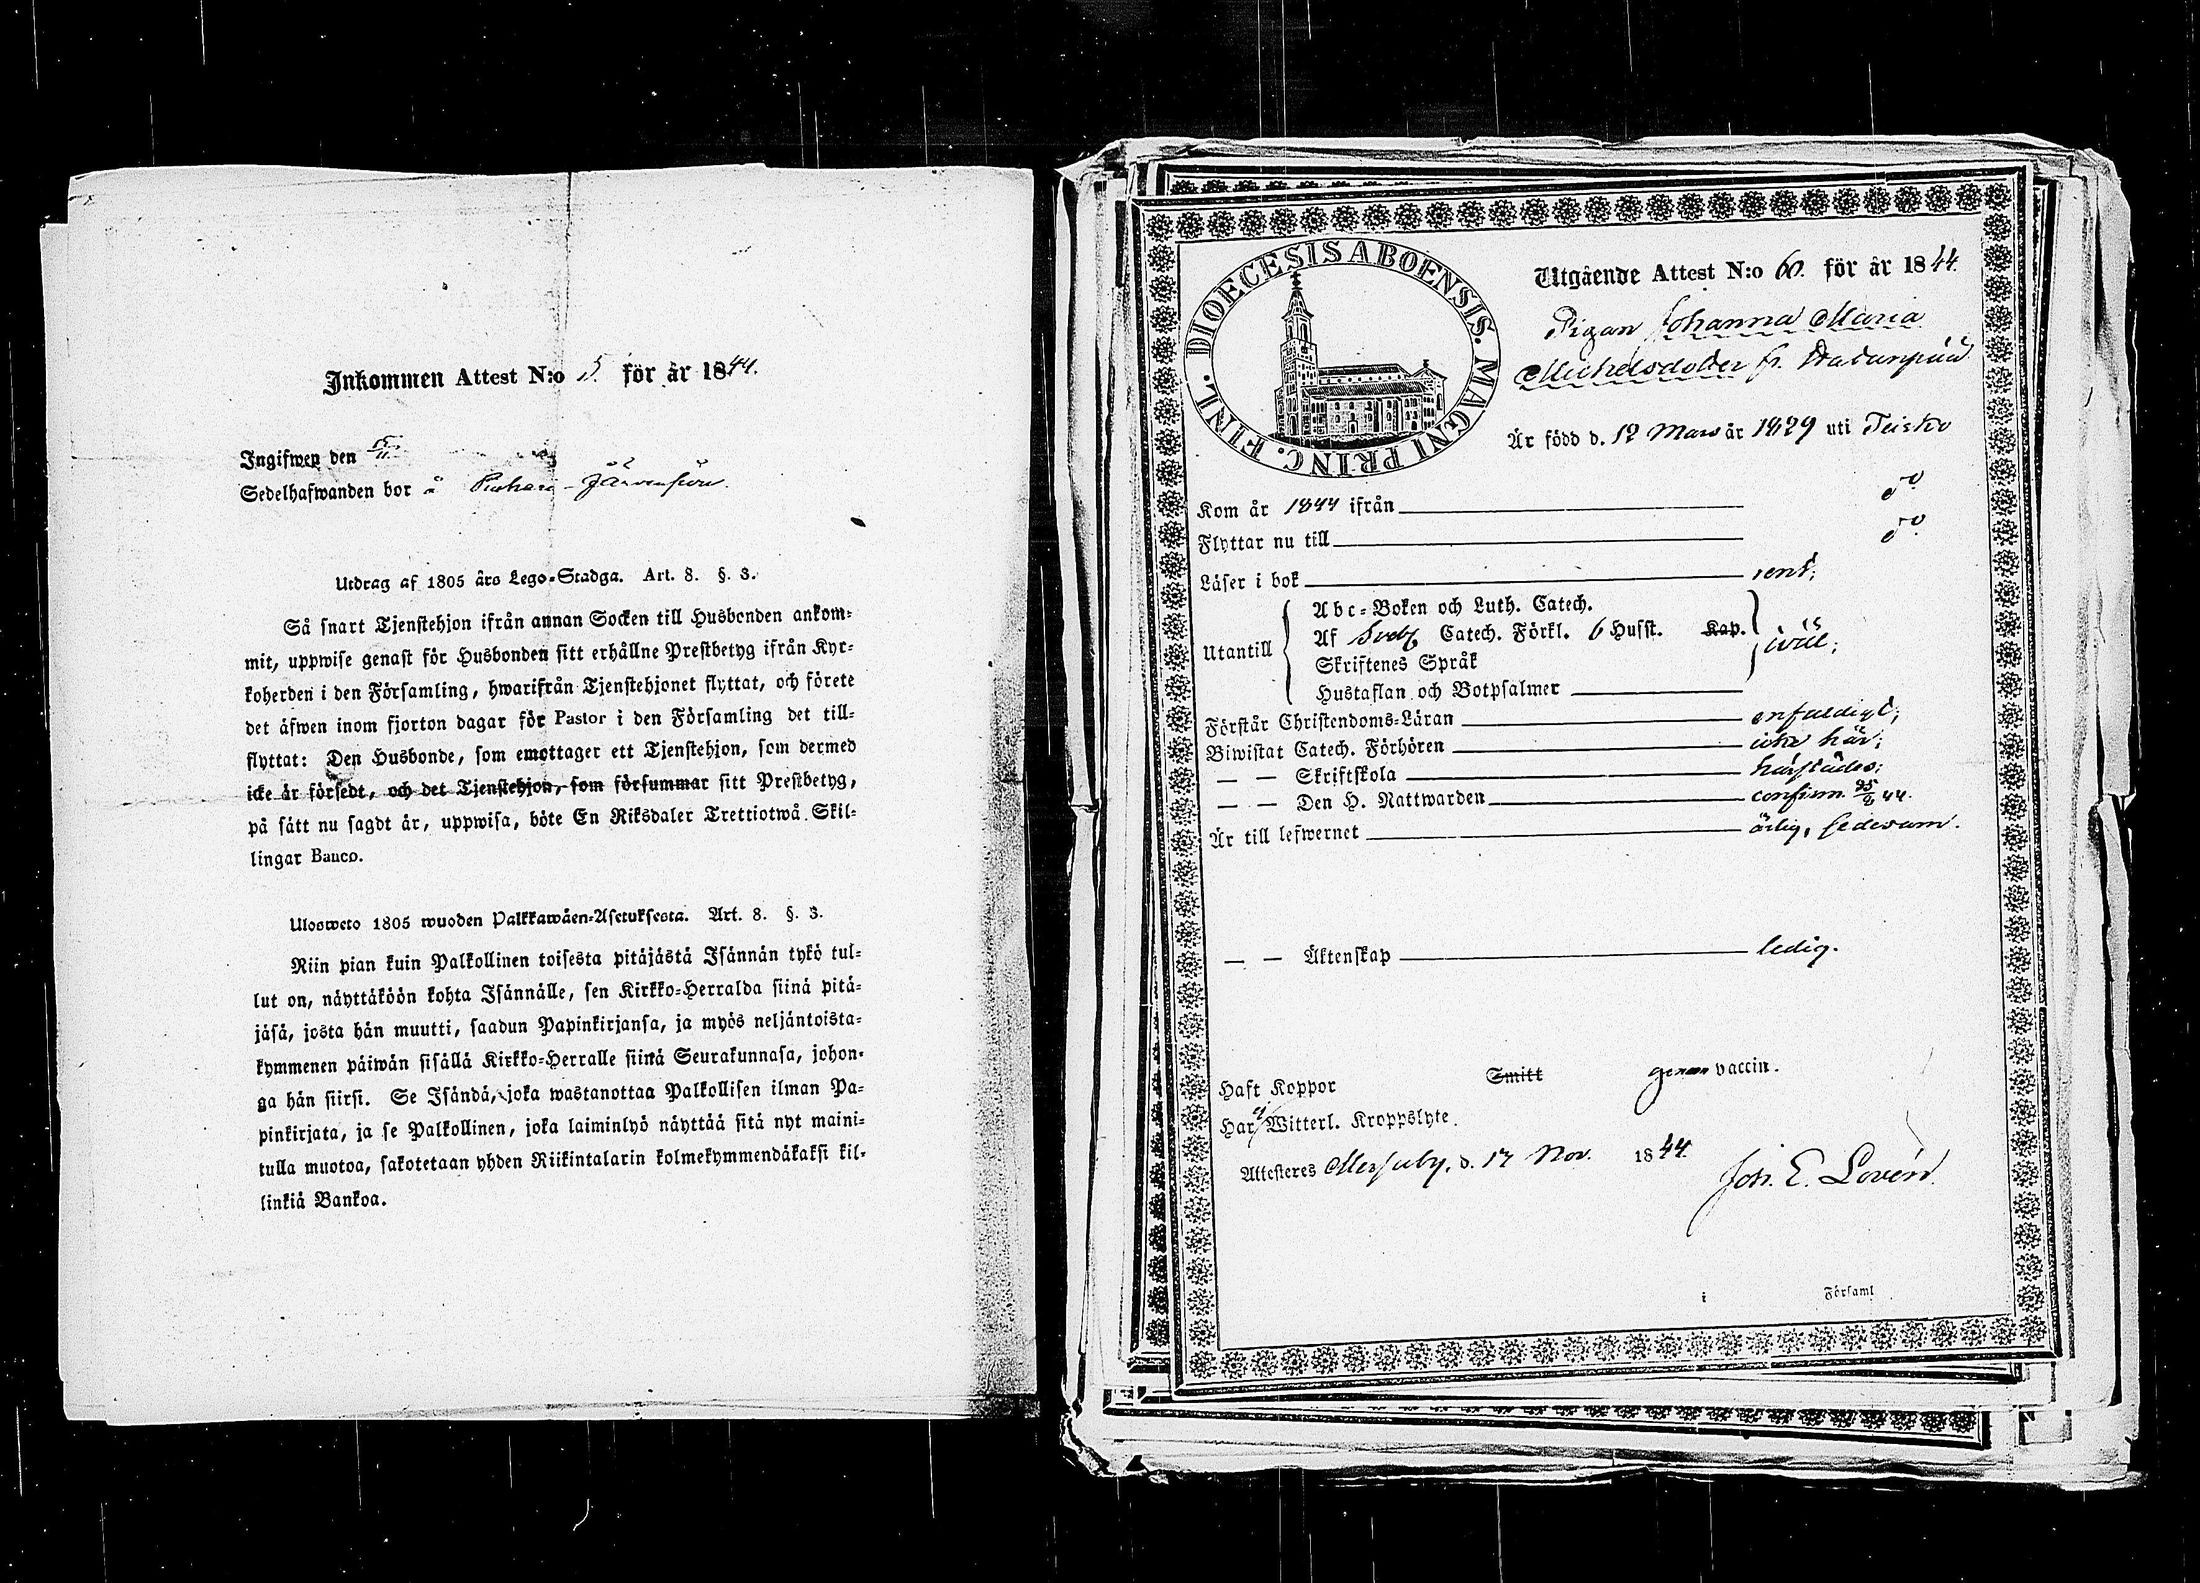 Inkommen Attest N:o 5. för år 1844.
Ingifwen den 15/11
Sedelhafwanden bor å
Utdrag af 1805 års Lego-Stadga. Art. 8. §. 3.
Så snart Tjenstehjon ifrån annan Socken till Husbonden ankom-
mit, uppwise genast för Husbonden sitt erhållne Prestbetyg ifrån Kyr-
koherden i den Församling, hwarifrån Tjenstehjonet flyttat, och förete
det äfwen inom fjorton dagar för Pastor i den Församling det till-
flyttat: Den Husbonde, som emottager ett Tjenstehjon, som dermed
icke är försedt, och det Tjenstehjon, som försummar sitt Prestbetyg,
på sätt nu sagdt är, uppwisa, böte En Riksdaler Trettiotwå Skil-
lingar Banco.
Ulosweto 1805 wuoden Palkkawäen-Asetuksesta. Art. 8. §. 3.
Niin pian kuin Palkollinen toisesta pitäjästä Isännän tykö tul-
lut on, näyttäköön kohta Isännälle, sen Kirkko-Herralda siinä pitä-
jäsä, josta hän muutti, saadun Papinkirjansa, ja myös neljäntoista-
kymmenen päiwän sisällä Kirkko-Herralle siinä Seurakunnasa, johon-
ga hän siirsi. Se Isändä, joka wastanottaa Palkollisen ilman Pa-
pinkirjata, ja se Palkollinen, joka laiminlyö näyttää sitä nyt maini-
tulla muotoa, sakotetaan yhden Riikintalarin kolmekymmendäkaksi kil-
linkiä Bankoa.
DIOECESIS ABOENSIS. MAGNI PRINC. FINL.
Utgående Attest N:o 60. för år 1844.
Pigan Johanna Maria
Michelsdotter fr.
Är född d. 12 Mars år 1829 uti Teisko
Kom år 1844 ifrån do
Flyttar nu till do
Läser i bok rent;
Abc-Boken och Luth. Catech.
Af Svebz Catech. Förkl. 6 Husst. Kap.
Utantill wäl;
Skriftenes Språk
Hustaflan och Botpsalmer
Förstår Christendoms-Läran enfaldigt;
Biwistat Catech. Förhören icke här;
— — Skriftskola härstädes;
— — Den H. Nattwarden confirm. 25/8 44.
Är till lefwernet ärlig, sedesam.
— — Äktenskap ledig.
Haft Koppor Smitt genom vaccin.
Har ej Witterl. Kroppslyte.
Attesteres Messuby, d. 17 Nov. 1844.
Joh. E. Lovén.
i Församl